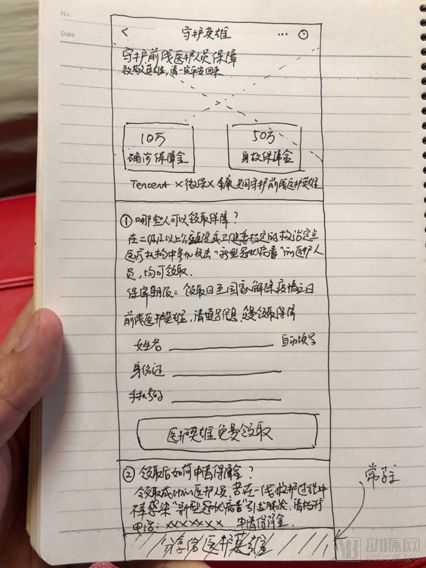 No.
Date
< 守护英雄 ...
守护前线医护人员保障
致敬英雄,请一定平安回来
10万 50万
确诊保障金 身故保障金
Tencent × 微保 × 共同守护前线医护英雄
① 哪些人可以领取保障?
在二级及以上公立医院或卫健委指定的救治定点
医疗机构中参与抗击“新型冠状病毒”的医护人
员,均可领取.
保障期限:领取日至国家解除疫情之日
前线医护英雄,请填写信息,免费领取保障
姓名 自动填写
身份证
手机号码
医护英雄免费领取
② 领取后如何申请保障金?
领取成功的医护人员 若在一线救护过程中
不幸感染“新型冠状病毒”引起肺炎,请拨打
电话:xxxxxxx 申请保障金.
分享给医护英雄
常驻
动脉网